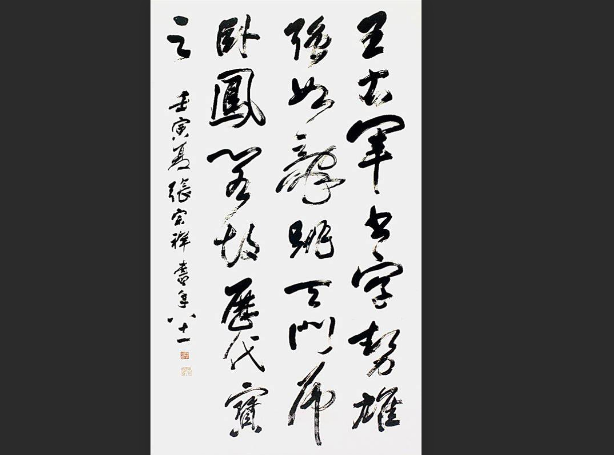 王右軍書字勢雄
強如龍跳天門虎
卧鳳閣故歷代寶
之
壬寅夏張宗祥書年八十一